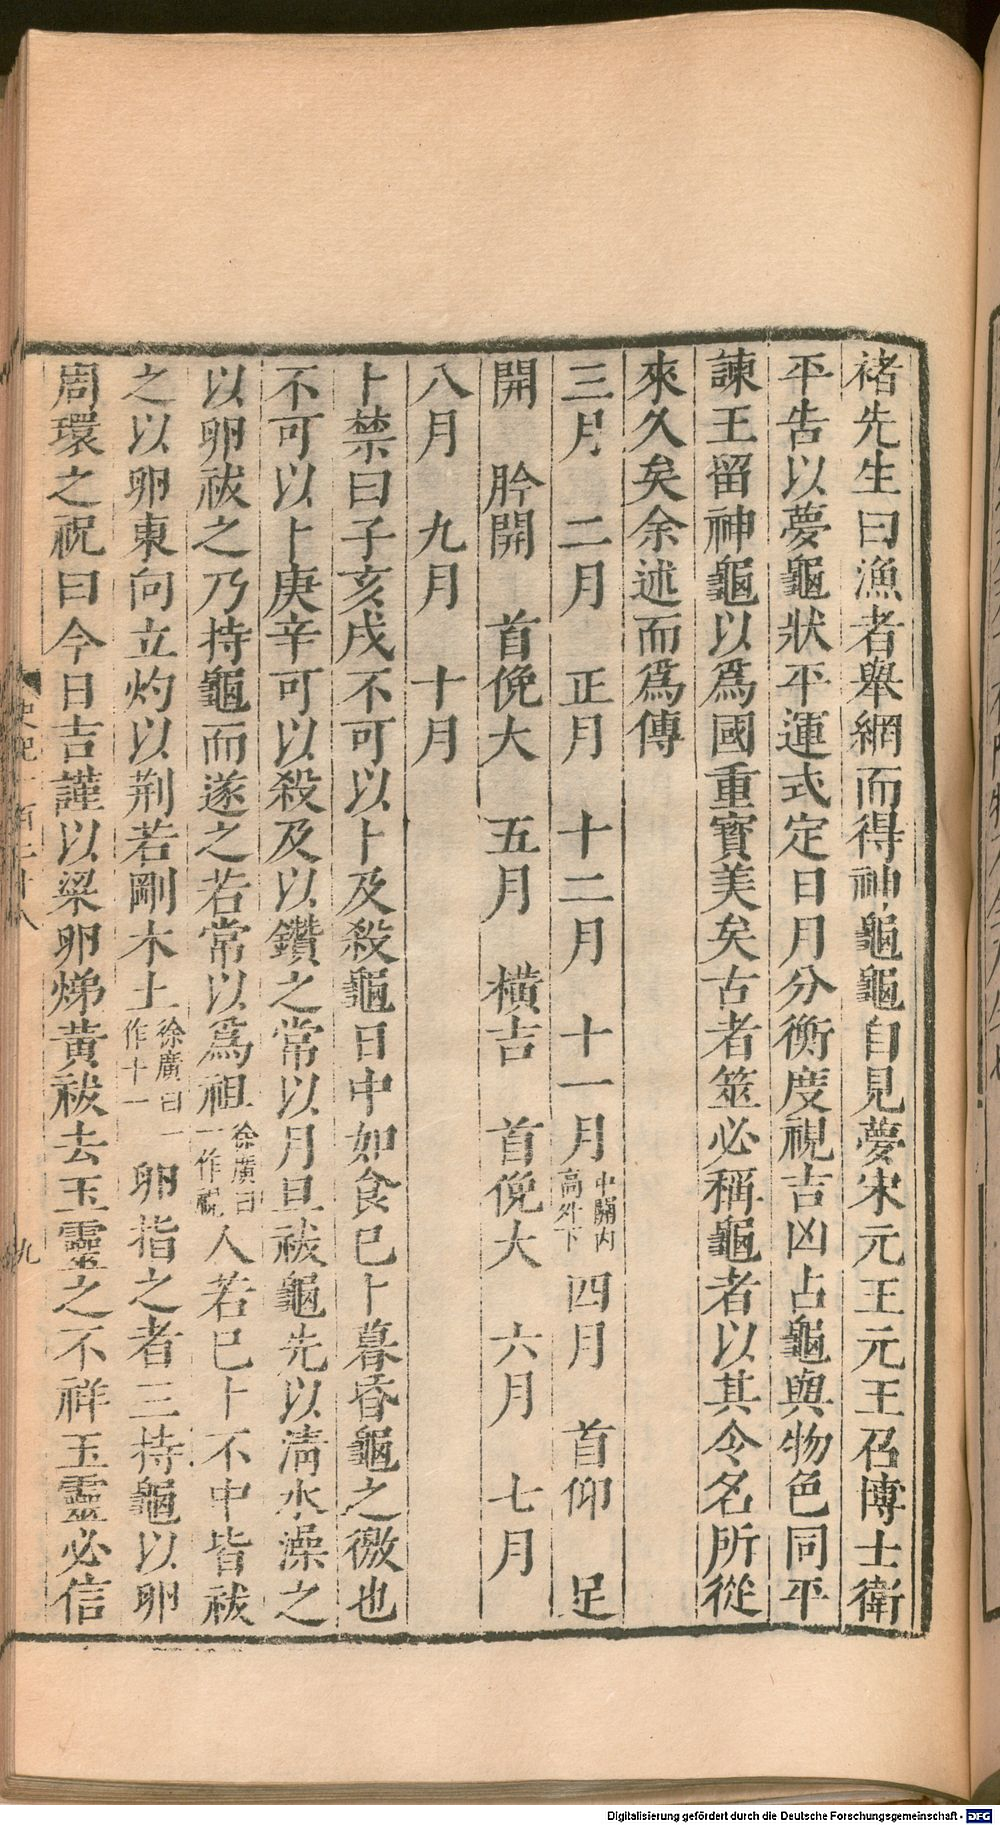 褚先生曰漁者舉網而得神龜龜自見夢宋元王元王召博士衛
平告以夢龜狀平運式定日月分衡度視吉凶占龜與物色同平
諫王留神龜以爲國重寳美矣古者筮必稱龜者以其令名所從
來久矣余述而爲傳
三月 二月 正月 十二月 十一月 中關内高外下 四月 首仰 足
開 肣開 首俛大 五月 橫吉 首俛大 六月 七月
八月 九月 十月
卜禁曰子亥戌不可以卜及殺龜日中如食已卜暮昏龜之徼也
不可以卜庚辛可以殺及以鑽之常以月旦祓龜先以淸水澡之
以卵祓之乃持龜而遂之若常以爲祖 徐廣曰一作視 人若已卜不中皆祓
之以卵東向立灼以荆若剛木土 徐廣曰一作十一 卵指之者三持龜以卵
周環之祝曰今日吉謹以梁卵焍黃祓去玉靈之不祥玉靈必信
史記一百二十八 九
Digitalisierung gefördert durch die Deutsche Forschungsgemeinschaft - DFG